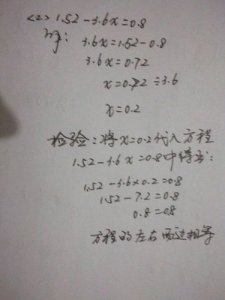 <2> 1.52-3.6x=0.8
解: 3.6x=1.52-0.8
3.6x=0.72
x=0.72÷3.6
x=0.2
检验:将x=0.2代入方程
1.52-3.6x=0.8中得到:
1.52-3.6×0.2=0.8
1.52-7.2=0.8
0.8=0.8
方程的左右两边相等